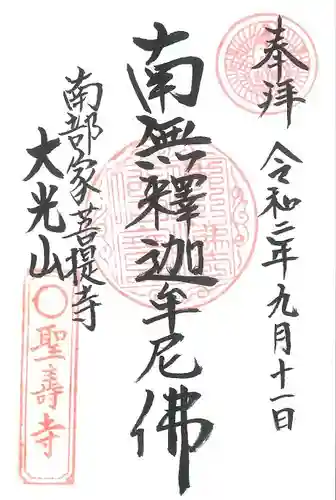 奉拝
令和二年九月十一日
南無釋迦牟尼佛
南部家菩提寺
大光山
聖壽寺